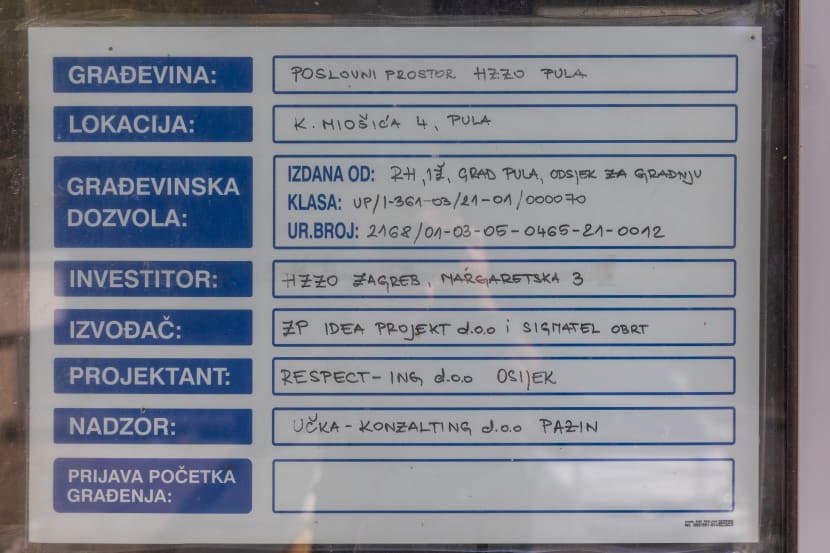 GRAĐEVINA: POSLOVNI PROSTOR HZZO PULA
LOKACIJA: K. MIOŠIĆA 4, PULA
GRAĐEVINSKA DOZVOLA:
IZDANA OD: RH, IŽ, GRAD PULA, ODSJEK ZA GRADNJU
KLASA: UP/I-361-03/21-01/000070
UR.BROJ: 2168/01-03-05-0465-21-0012
INVESTITOR: HZZO ZAGREB, MARGARETSKA 3
IZVOĐAČ: ZP IDEA PROJEKT d.o.o i SIGMATEL OBRT
PROJEKTANT: RESPECT-ING d.o.o OSIJEK
NADZOR: UČKA-KONZALTING d.o.o PAZIN
PRIJAVA POČETKA
GRAĐENJA: